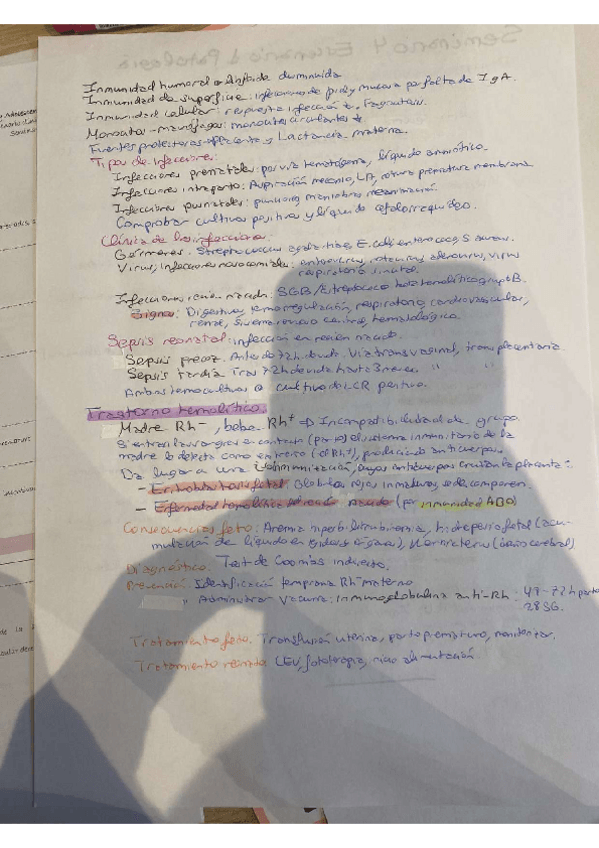 Inmunidad humoral o Ab/pasiva disminuida
Inmunidad de superficie: infecciones de piel y mucosa por falta de IgA.
Inmunidad celular: respuesta infección ↓. Fagocitosis.
Monocitos-macrófagos: monocitos circulantes ↓
Fuentes protectoras: placenta y Lactancia materna.
Tipos de infecciones:
Infecciones prenatales: por vía hematógena, líquido amniótico.
Infecciones intraparto: Aspiración meconio, LA, rotura prematura membrana
Infecciones posnatales: punciones, maniobras reanimación
Comprobar cultivos positivos y líquido cefalorraquídeo.
Clínica de las infecciones:
Gérmenes: Streptococcus agalactiae, E. coli, enterococo, S. aureus.
Virus, infecciones nosocomiales: enterovirus, rotavirus, adenovirus, virus
respiratorio sincitial.
Infecciones recién nacido: SGB/Estreptococo beta hemolítico grupo B.
Signos: Digestivo, termorregulación, respiratorio, cardiovascular,
renal, S. nervioso central, hematológico.
Sepsis neonatal: infección en recién nacido.
Sepsis precoz: Antes de 72h de vida. Vía transvaginal, transplacentaria
Sepsis tardía: Tras 72h de vida hasta 3 meses " "
Ambas hemocultivos o cultivo de LCR positivo.
Trastorno hemolítico.
Madre Rh⁻, bebe Rh⁺ ⇒ Incompatibilidad de grupo
Si entran las sangres en contacto (parto) el sistema inmunitario de la
madre lo detecta como extraño (al Rh⁺), produciendo anticuerpos.
Da lugar a una isoinmunización, cuyos anticuerpos cruzan la placenta:
- Eritroblastosis fetal, Glóbulos rojos inmaduros, se descomponen.
- Enfermedad hemolítica del recién nacido (por inmunidad ABO)
Consecuencias feto: Anemia, hiperbilirrubinemia, hidropesía fetal (acu-
mulación de líquido en tejidos y órganos), Kernicterus (daño cerebral)
Diagnóstico: Test de Coombs indirecto.
Prevención: Identificación temprana Rh⁻ materno
" Administrar Vacuna: Inmunoglobulina anti-Rh - 49-72h parto
28SG.
Tratamiento feto: Transfusión uterina, parto prematuro, monitorizar.
Tratamiento neonato: LEV, fototerapia, inicio alimentación.